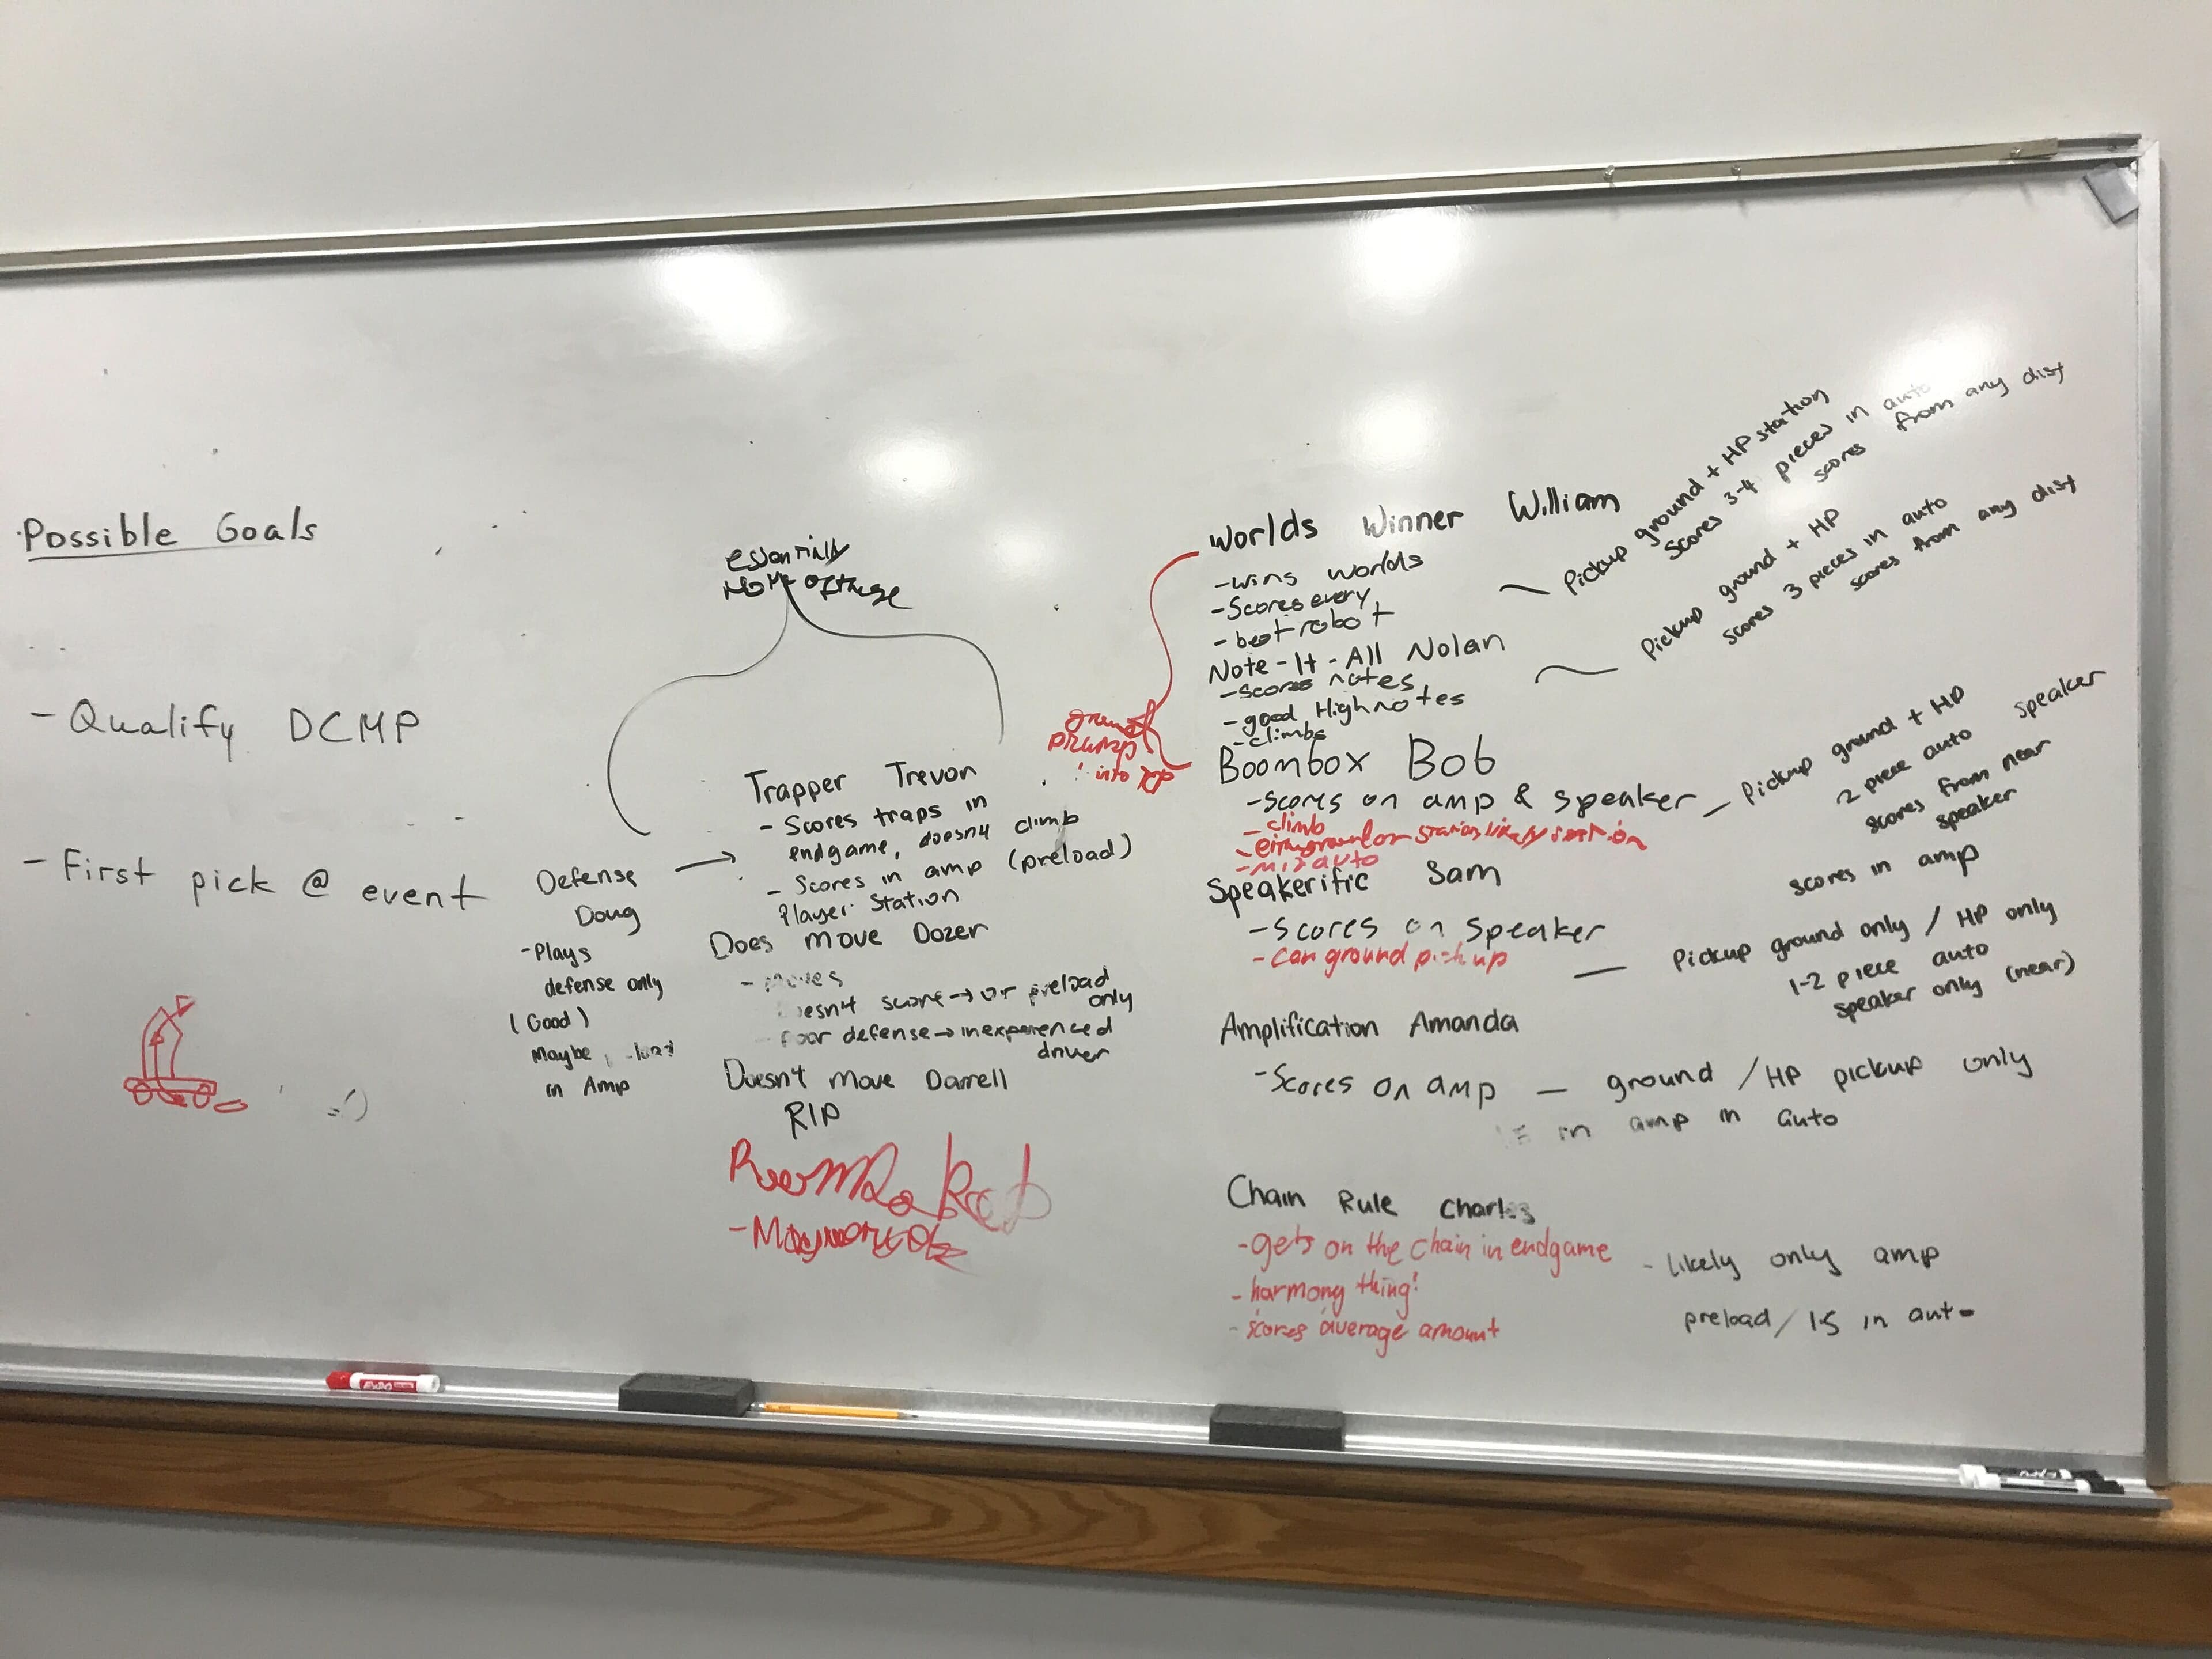 Possible Goals
- Qualify DCMP
- First pick @ event
Defense
Doug
- Plays
defense only
(Good)
Maybe
in Amp
essentially
None of these
Trapper Trevon
- Scores traps in
endgame, doesn't climb
- Scores in amp (preload)
Player Station
Does move Dozer
- moves
doesn't score → or preload
only
poor defense → inexperienced
driver
Doesn't move Darrell
RIP
ground
into
Worlds Winner William
- wins worlds
- Scores every
- best robot
Pickup ground + HP station
Scores 3-4 pieces in auto
scores from any dist
Note-It-All Nolan
- scores notes
- good High notes
- climbs
Pickup ground + HP
scores 3 pieces in auto
scores from any dist
Boombox Bob
- scores on amp & speaker
- climb
- mid auto
Pickup ground + HP
2 piece auto speaker
scores from near
speaker
scores in amp
Speakerific Sam
- scores on speaker
- can ground pickup
Pickup ground only / HP only
1-2 piece auto
speaker only (near)
Amplification Amanda
- Scores on amp — ground / HP pickup only
in amp in auto
Chain Rule Charles
- gets on the chain in endgame
- harmony thing!
- scores average amount
- likely only amp
preload / 1.5 in auto